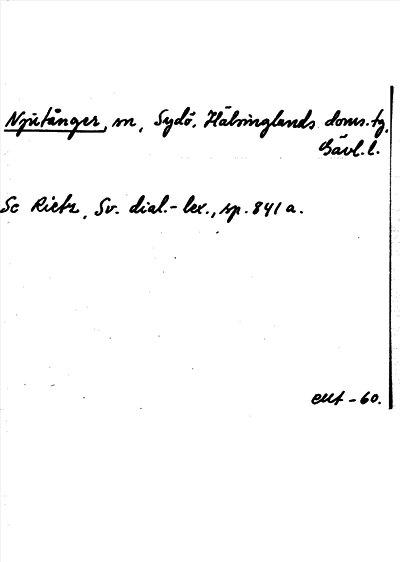 Njutånger, sn, Sydö. Hälsinglands doms.tg,
Gävl.l.
Se Rietz, Sv. dial.-lex., sp. 841 a.
-60.